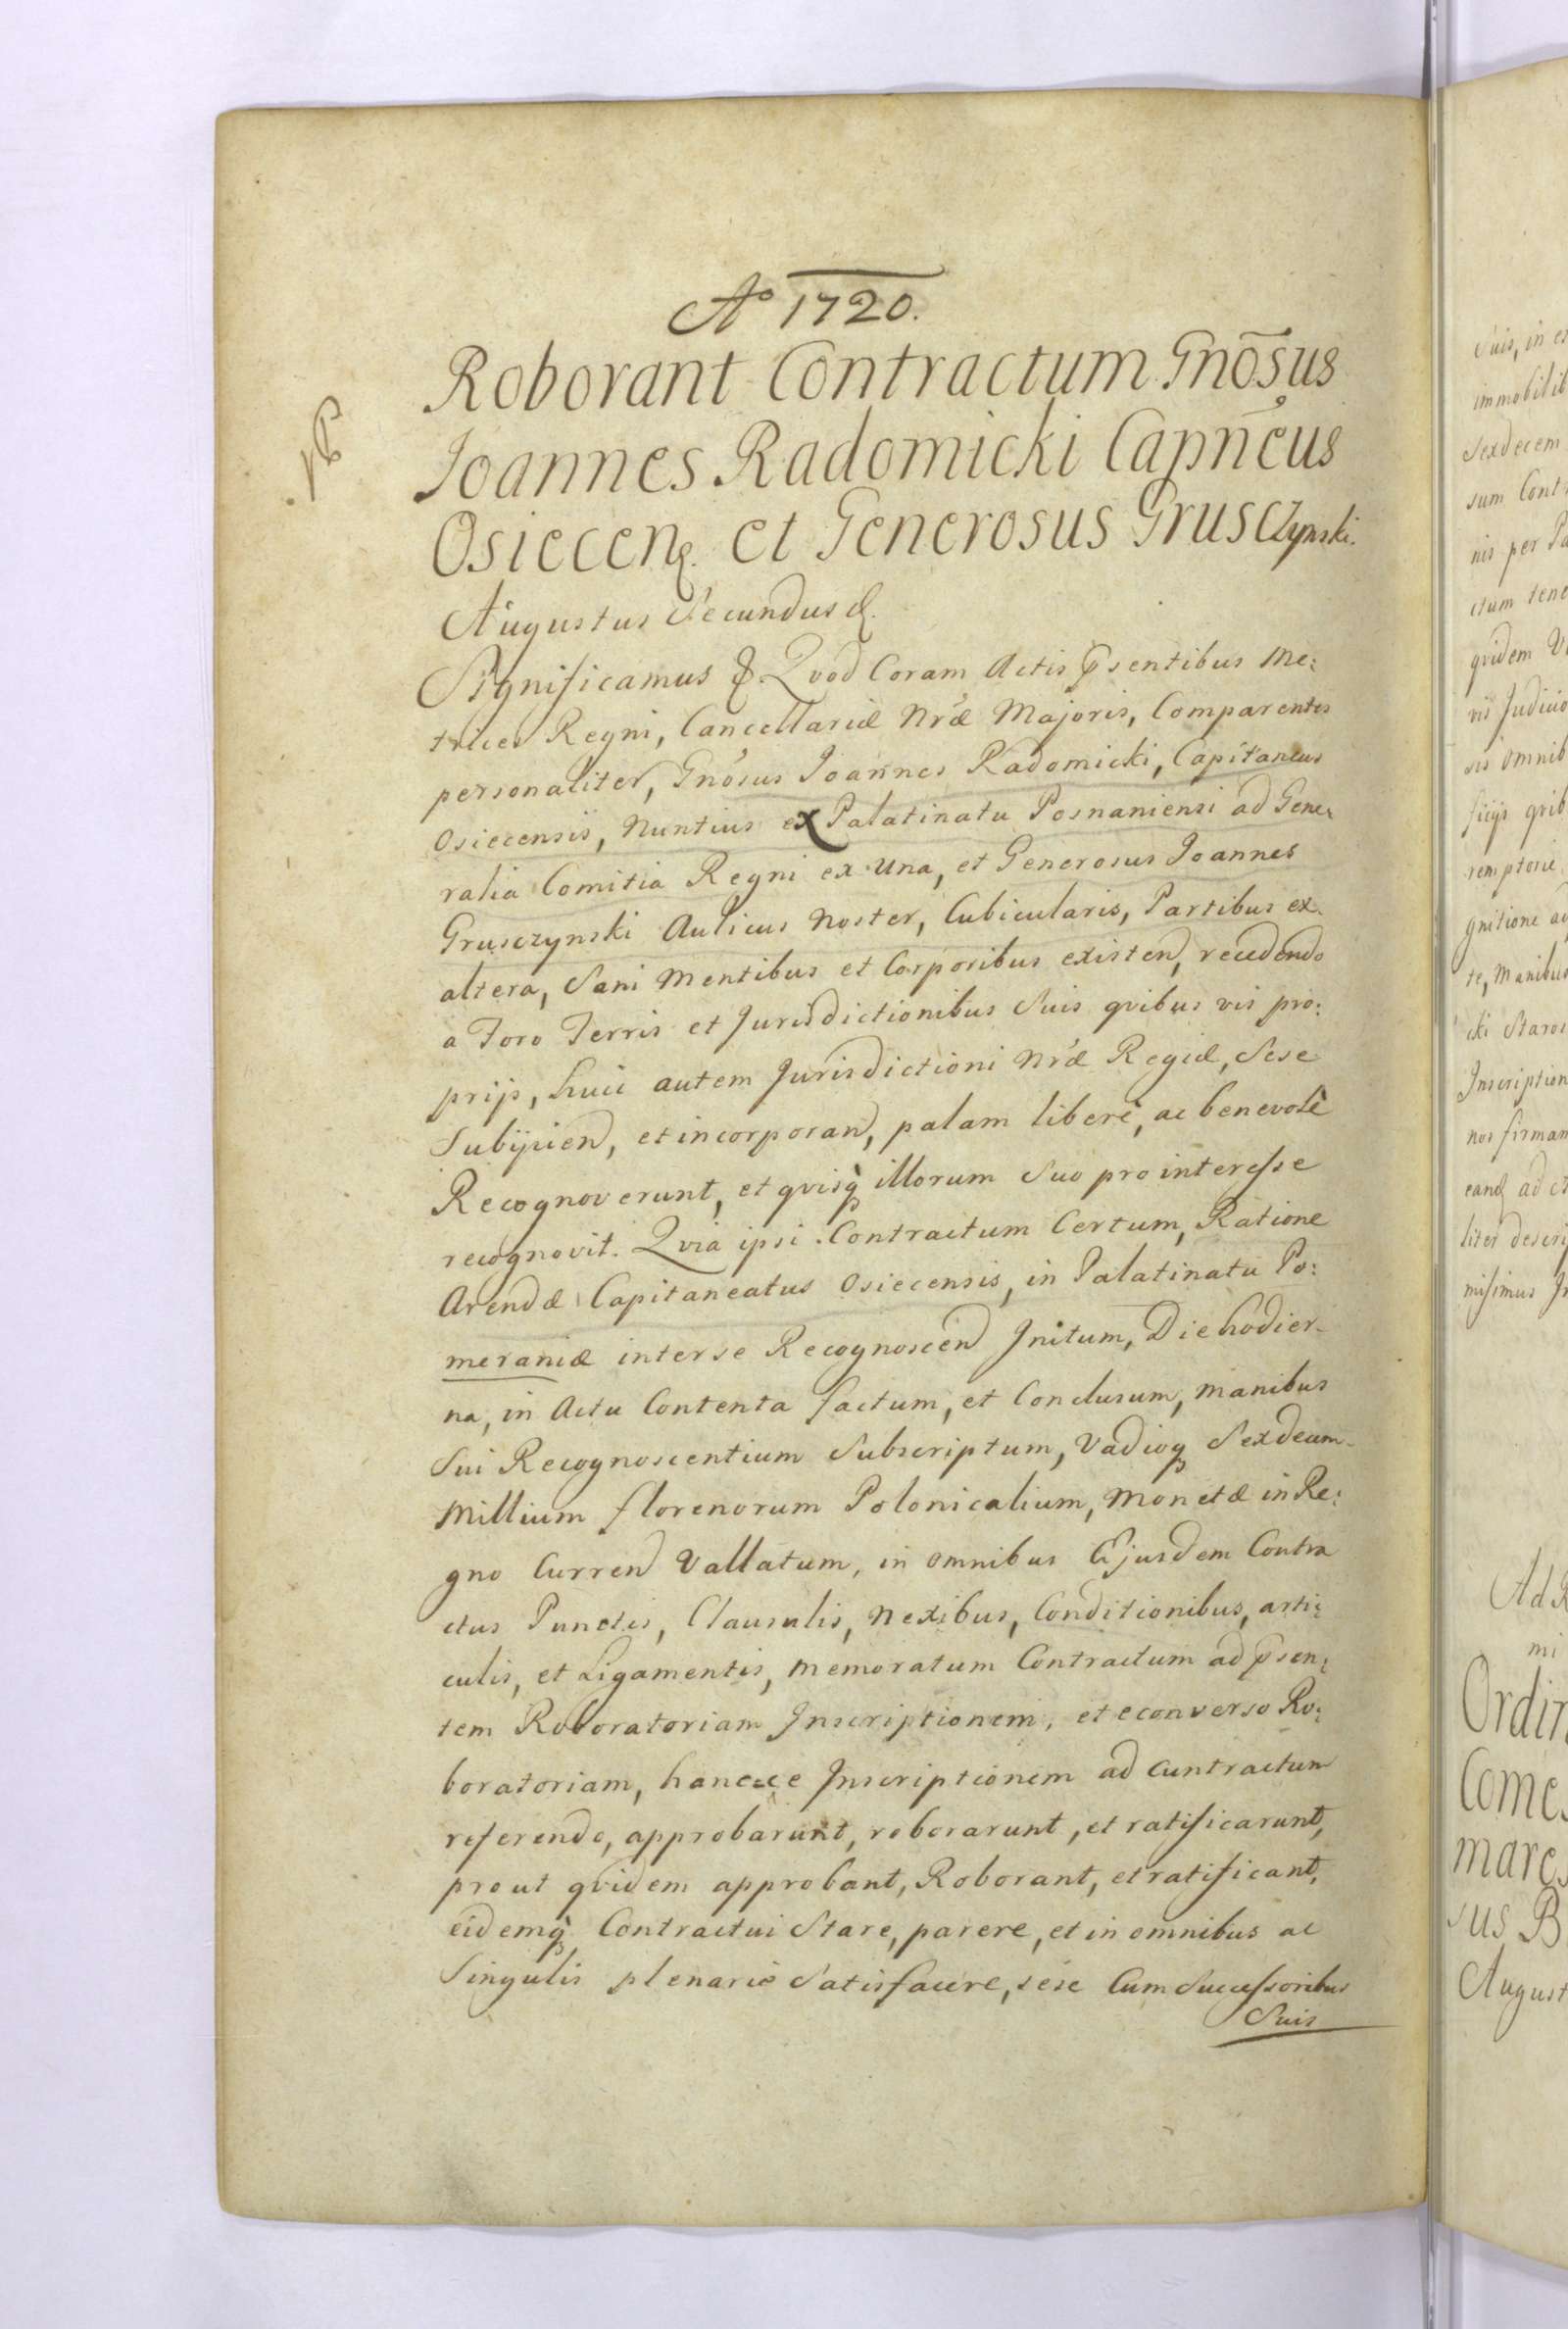 Aº 1720.
Roborant Contractum Gnōsus
Joannes Radomicki Capn̄eus
Osiecen. et Generosus Grusczynski.
Augustus Secundus &.
Significamus &. Qvod Coram Actis p̄sentibus Me:
trices Regni, Cancellariæ Nr̄æ Majoris, Comparentes
personaliter, Gnōsus Joannes Radomicki, Capitaneus
Osiecensis, Nuntius ex Palatinatu Posnaniensi ad Gene:
ralia Comitia Regni ex una, et Generosus Joannes
Grusczynski Aulicus Noster, Cubicularis, Partibus ex
altera, Sani Mentibus et Corporibus existen, recedendo
a Foro Terris et Jurisdictionibus Suis qvibus vis pro:
prijs, huic autem Jurisdictioni Nr̄æ Regiæ, Sese
Subijcien, et incorporan, palam liberè, ac benevolè
Recognoverunt, et qvisq̀ illorum Suo pro interesse
recognovit. Qvia ipsi Contractum Certum, Ratione
Arendæ Capitaneatus Osiecensis, in Palatinatu Po:
meraniæ interse Recognoscen Initum, Die hodier-
na, in Actu Contenta factum, et Conclusum, manibus
Sui Recognoscentium Subscriptum, Vadioq Sexdecim
Millium florenorum Polonicalium, Monetæ in Re:
gno Curren Vallatum, in omnibus Ejusdem Contra
ctus Punctis, Clausulis, Nexibus, Conditionibus, arti:
culis, et Ligamentis, memoratum Contractum ad p̄sen:
tem Roboratoriam Inscriptionem, et econverso Ro:
boratoriam, hancce Inscriptionem ad Contractum
referendo, approbarunt, roborarunt, et ratificarunt,
prout qvidem approbant, Roborant, et ratificant,
eidemq̀ Contractui Stare, parere, et in omnibus ac
Singulis plenariè Satisfacere, sese Cum Successoribus
Suis
Suis, in
immobilib
Sexdecem
sum Cont
nis per Pa
ctum tene
qvidem
nis Judicio
sis omnib
ficijs qvib
remptorie
gnitione
te, Manibus
cki Staros
Inscription
nos firman
ad
liter descri
misimus
Ad R
mi
Ordin
Comes
mares
sus B
August